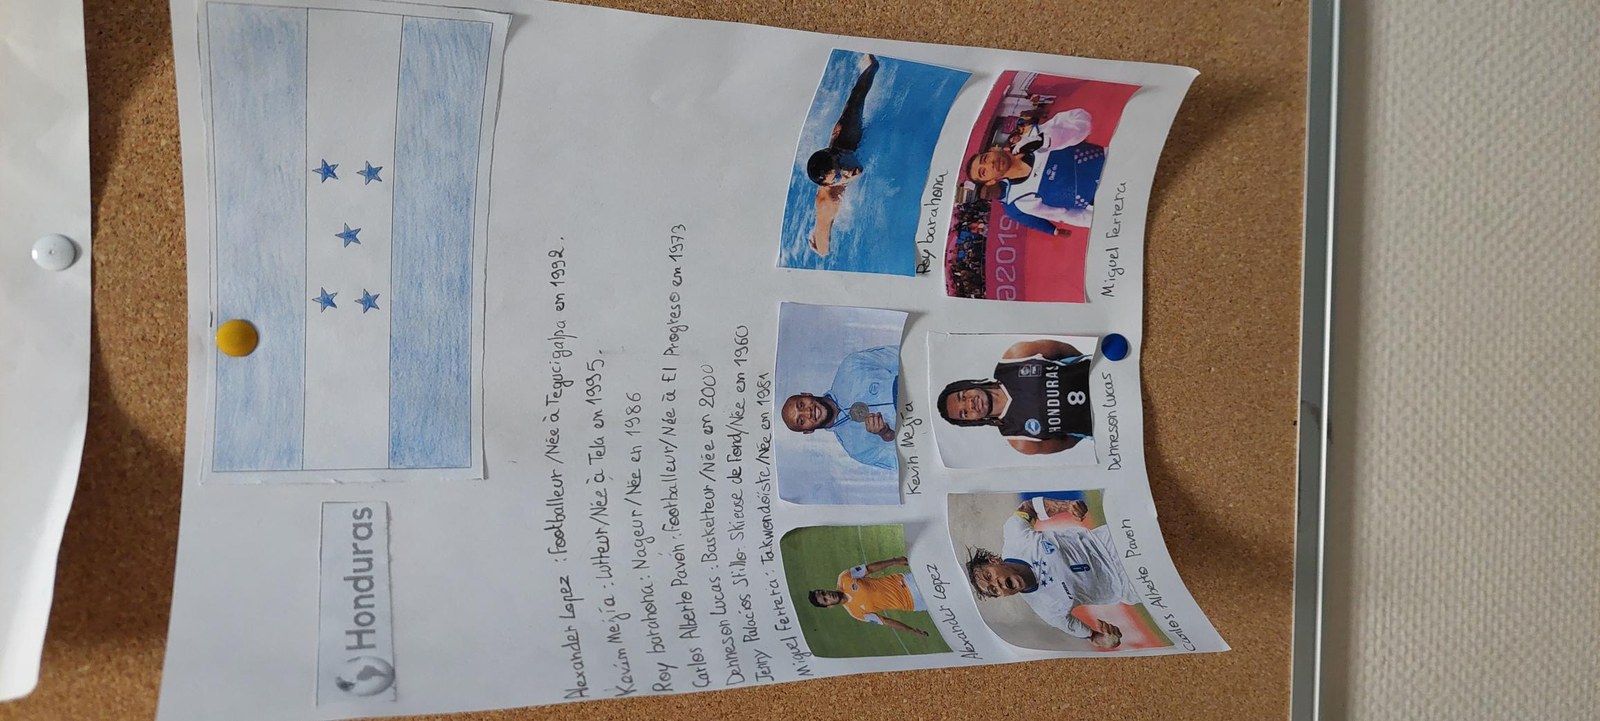 Honduras
Alexander Lopez : Footballeur /Née à Tegucigalpa en 1992.
Mejía : Lutteur/Née à Tela en 1995.
Roy barahona : Nageur/Née en 1986
Carlos Alberto Pavón : Footballeur/Née à El Progreso en 1973
Denneson Lucas : Basketteur/Née en 2000
Jenny Palacios Stillo- Skieuse de Fond/Née en 1960
Miguel Ferrera : Takwondoïste/Née en 1981
Roy barahona
Kevin Mejía
Alexandr Lopez
2019
Miguel Ferrera
HONDURAS
8
Denneson Lucas
9
Carlos Albeto Pavon